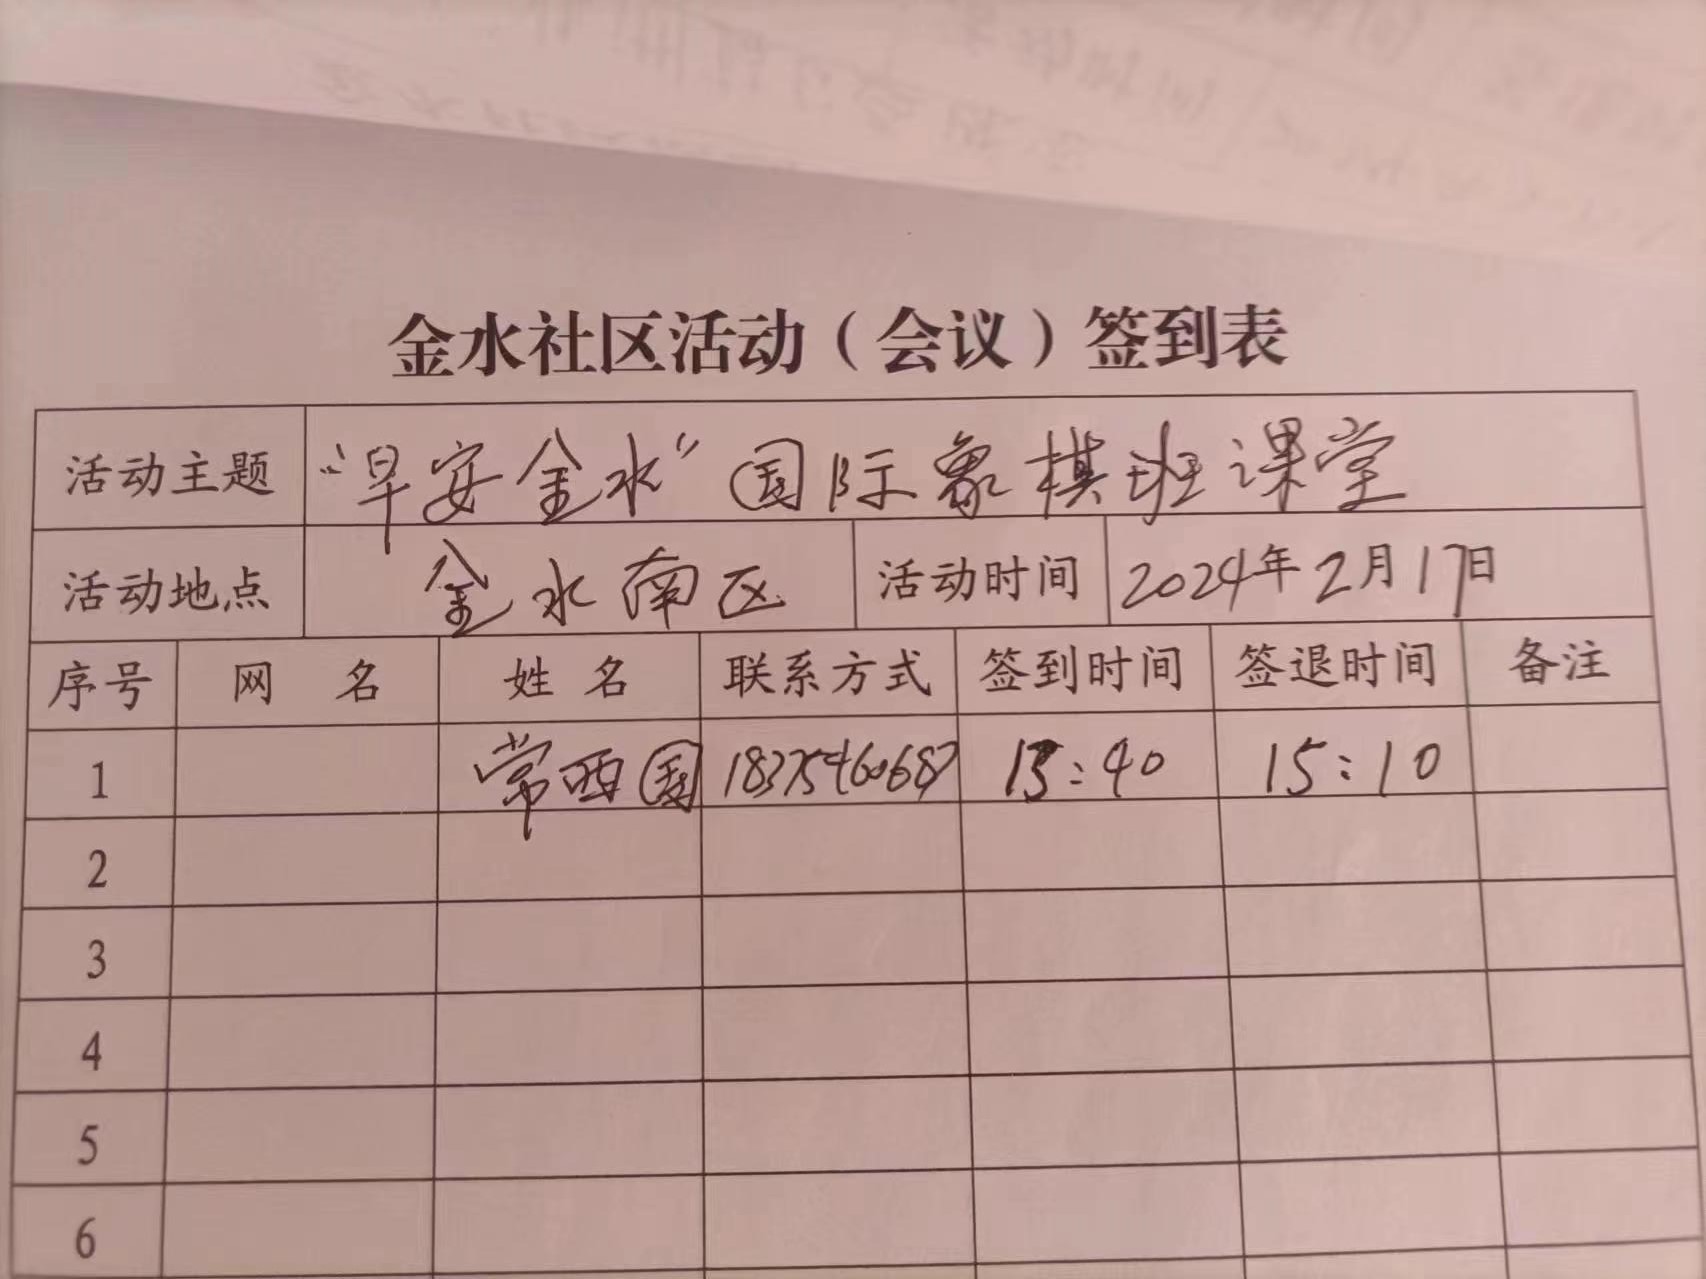 金水社区活动（会议）签到表
活动主题 “早安金水”国际象棋班课堂
活动地点 金水南区 活动时间 2024年2月17日
序号 网 名 姓 名 联系方式 签到时间 签退时间 备注
1 常西国 18375460687 13:40 15:10
2
3
4
5
6